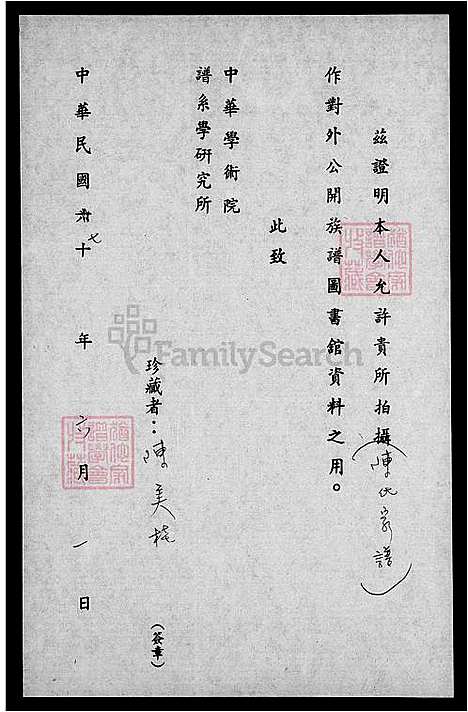 茲證明本人允許貴所拍攝(陳氏家譜)
作對外公開族譜圖書館資料之用。
此致
中華學術院
譜系學研究所
珍藏者：陳美桃
(簽章)
中華民國 十七年六月一日
FamilySearch